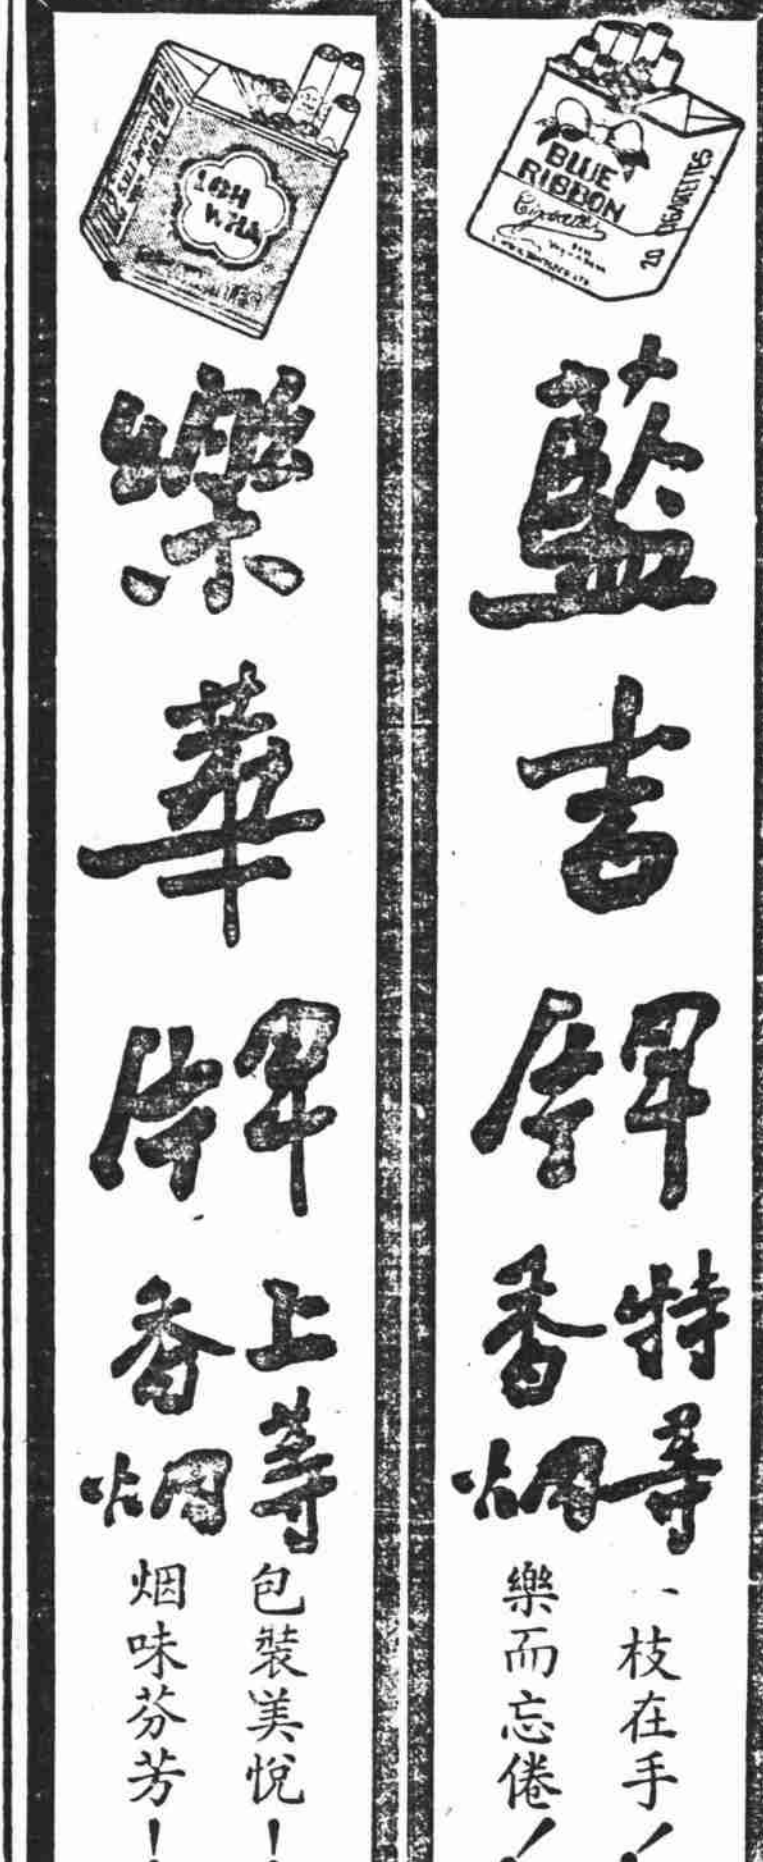 BLUE
RIBBON
Cigarettes
20 CIGARETTES
藍吉牌
特等
香烟
一枝在手！
樂而忘倦！
LOH
WHA
樂華牌
上等
香烟
包裝美悅！
烟味芬芳！